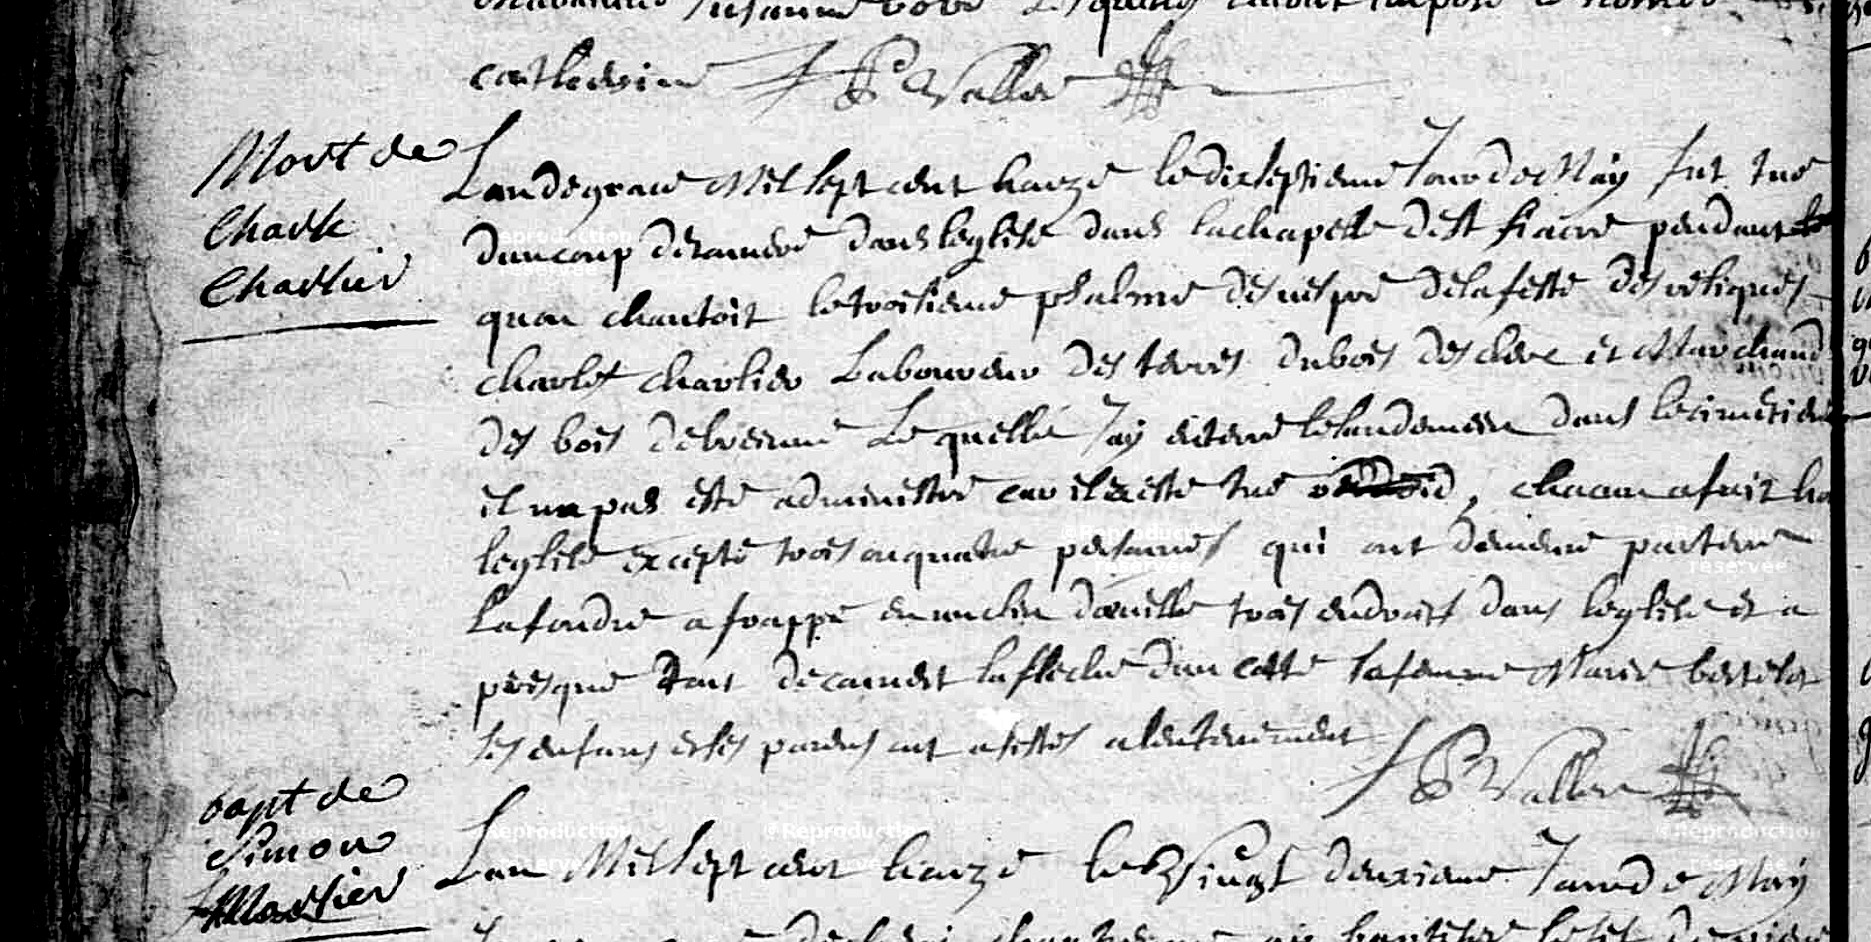 catherine P Vallee
Mort de
Charle
Charlier
Lan de grace Mil sept cent honze le dix septieme Jour de May fut tué
dun coup de tonnere dans leglise dans la chapelle de st fiacre pendant
quon chantoit le troisieme psalme des vespre de la feste des reliques
charles charlier Laboureur des terres du bois des clere et Marchand
des bois Le quelle Jay enterré le landemain dans le cimetiere
il na pas esté administré car il a esté tué , chacun a fuit
leglise excepté trois ou quatre personnes qui ont demeuré par terre
La foudre a frappé en un clin d'oeuille trois endroits dans leglise et a
presque tout decouvert la flèche dun coste sa femme Marie bertelot
ses enfans et ses parens ont assistes a lenterrement
P Vallee
bapt de
Simon
Charlier
Lan Mil sept cent honze le Vingt deuxieme Jour de May